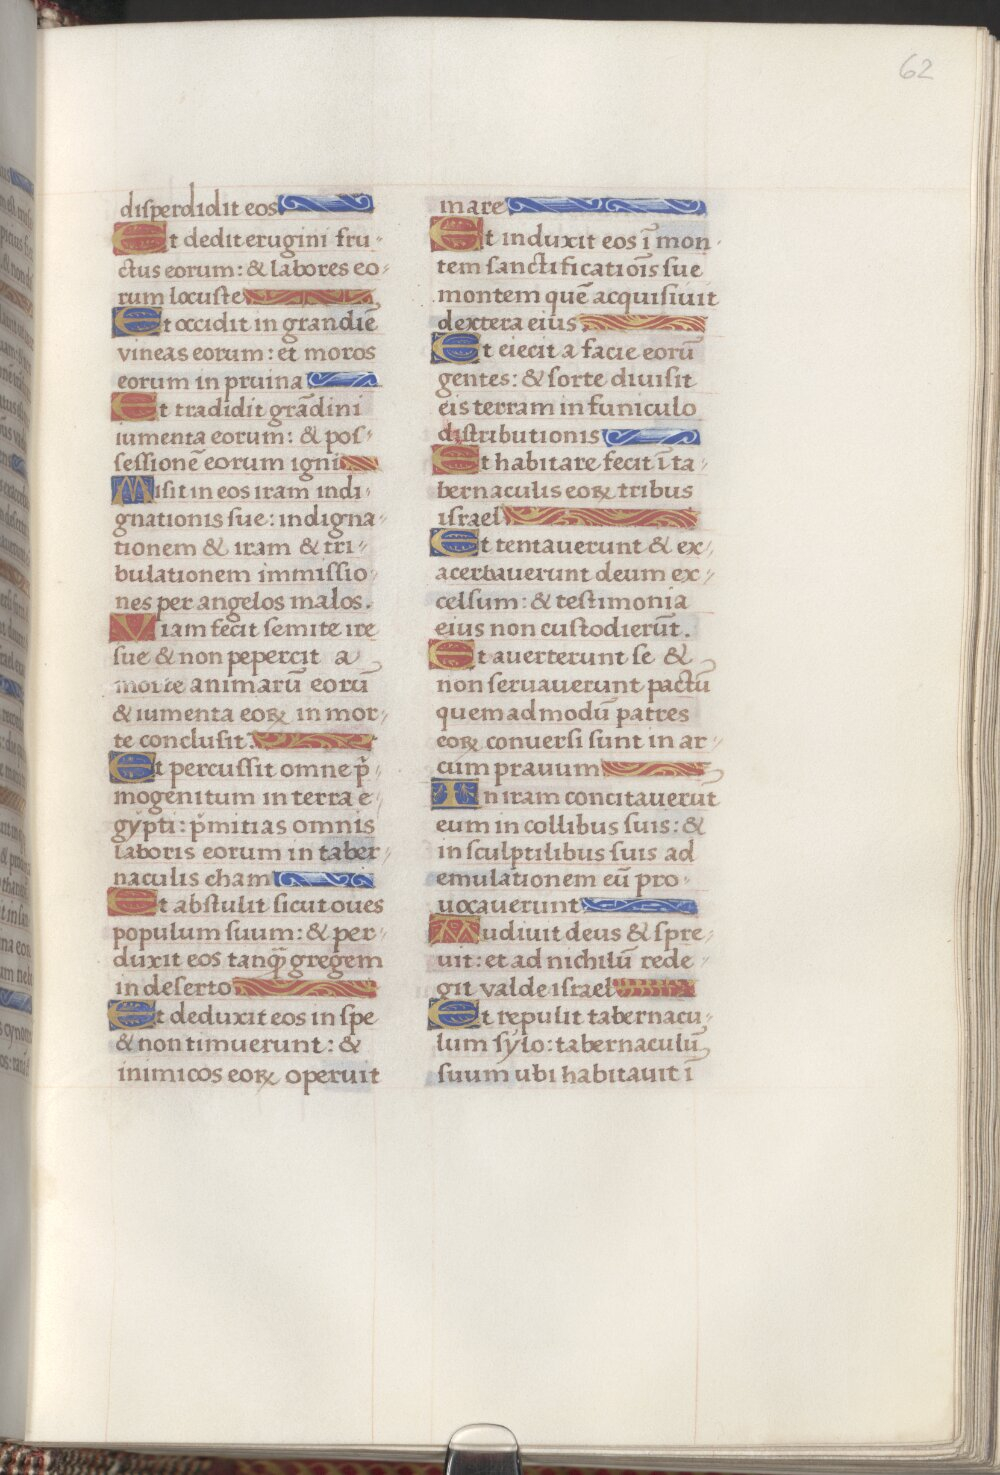 62
disperdidit eos
Et dedit erugini fru-
ctus eorum: & labores eo-
rum locuste
Et occidit in grandiē
vineas eorum: et moros
eorum in pruina
Et tradidit grādini
iumenta eorum: & pos-
sessionē eorum igni
Misit in eos iram indi-
gnationis sue: indigna-
tionem & iram & tri-
bulationem immissio-
nes per angelos malos.
Viam fecit semite ire
sue & non pepercit a
morte animarū eorū
& iumenta eoꝝ in mor-
te conclusit.
Et percussit omne p̄-
mogenitum in terra e-
gypti: p̄mitias omnis
laboris eorum in taber-
naculis cham
Et abstulit sicut oues
populum suum: & per-
duxit eos tanq̄ gregem
in deserto
Et deduxit eos in spe
& non timuerunt: &
inimicos eoꝝ operuit
mare
Et induxit eos ī mon-
tem sanctificatiōis sue
montem quē acquisiuit
dextera eius.
Et eiecit a facie eorū
gentes: & sorte diuisit
eis terram in funiculo
distributionis
Et habitare fecit ī ta-
bernaculis eoꝝ tribus
israel
Et tentauerunt & ex-
acerbauerunt deum ex-
celsum: & testimonia
eius non custodierūt.
Et auerterunt se &
non seruauerunt pactū
quemadmodū patres
eoꝝ conuersi sunt in ar-
cum prauum
In iram concitauerūt
eum in collibus suis: &
in sculptilibus suis ad
emulationem eū pro-
uocauerunt
Audiuit deus & spre-
uit: et ad nichilū rede-
git valde israel
Et repulit tabernacu-
lum sylo: tabernaculū
suum ubi habitauit ī